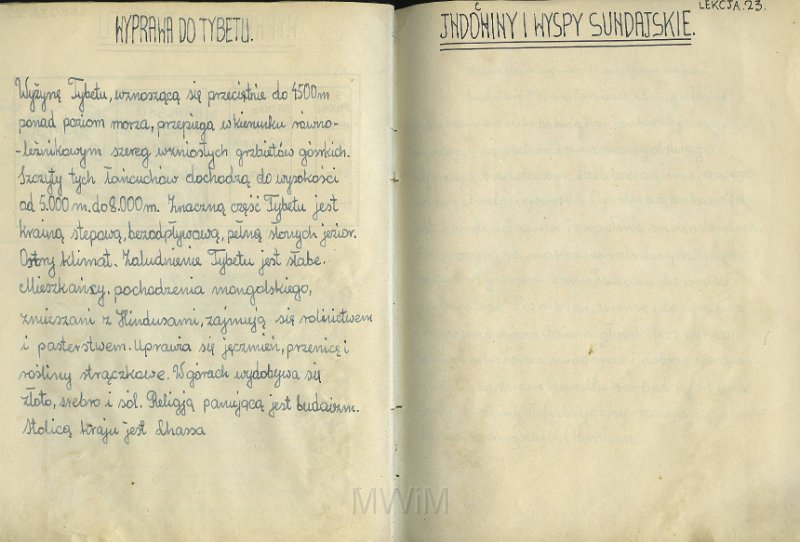 WYPRAWA DO TYBETU.
Wyżynę Tybetu, wznoszącą się przeciętnie do 4500 m
ponad poziom morza, przebiega w kierunku równo-
-leżnikowym szereg wzniosłych grzbietów górskich.
Szczyty tych łańcuchów dochodzą do wysokości
od 5.000 m. do 8.000 m. Znaczną część Tybetu jest
krainą stepową, bezodpływową, pełną słonych jezior.
Ostry klimat. Zaludnienie Tybetu jest słabe.
Mieszkańcy, pochodzenia mongolskiego,
zmieszani z Hindusami, zajmują się rolnictwem
i pasterstwem. Uprawia się jęczmień, pszenicę i
rośliny strączkowe. W górach wydobywa się
złoto, srebro i sól. Religją panującą jest budaizm.
Stolicą kraju jest Lhassa
LEKCJA. 23.
INDOCHINY I WYSPY SUNDAJSKIE.
MWiM